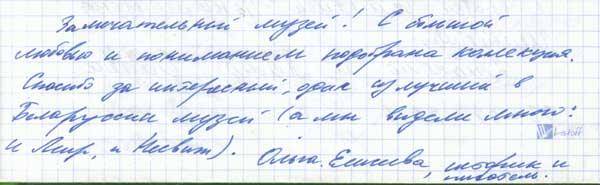 Замечательный музей! С большой
любовью и пониманием подобрана коллекция.
Спасибо за интересный, один из лучших в
Беларуссии музей (а мы видели много:
и Мир, и Несвиж). Ольга Елисеева, историк и
писатель.